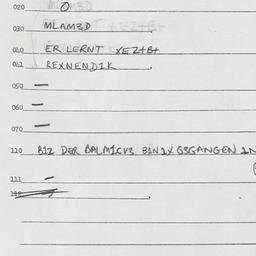 020 O
030 MLAMED
040 ER LERNT XEZ+B+
041 REXNENDIK
050 —
060 —
070 —
110 BIZ DER BALMICVE BIN IX GEGANGEN IN
111 —